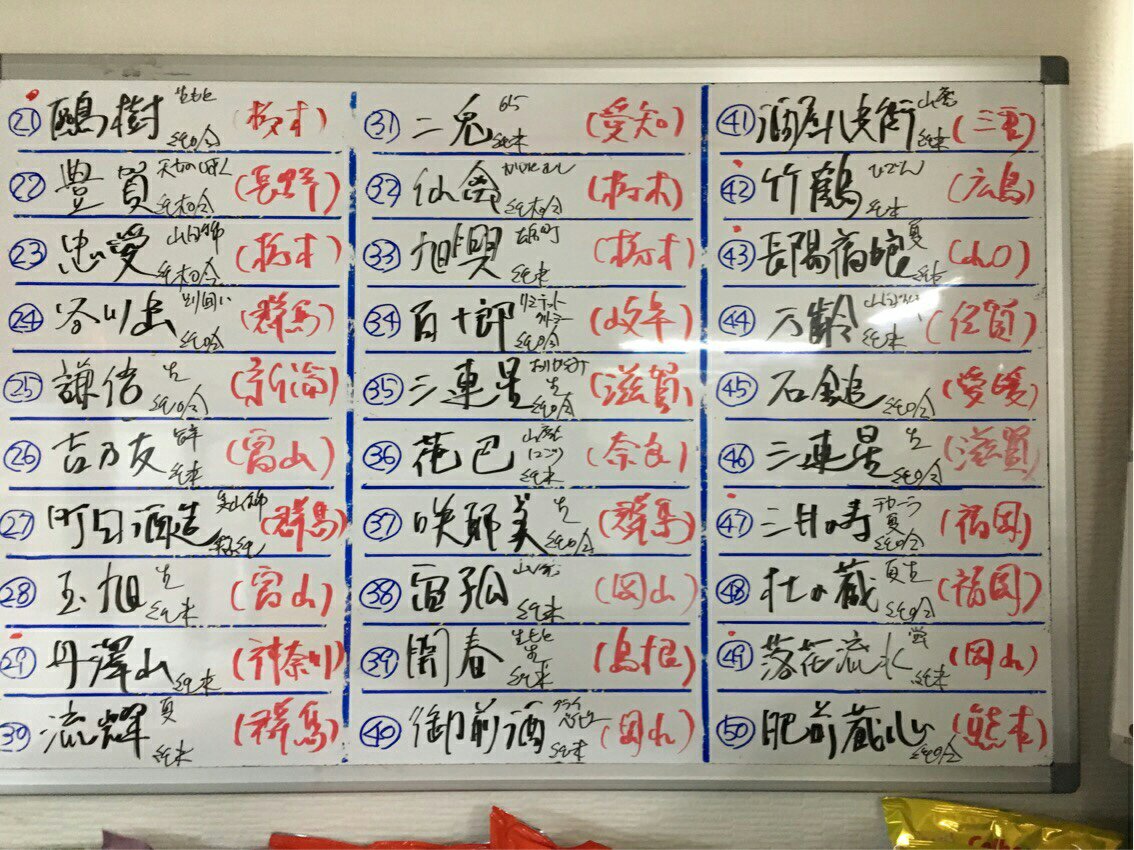 ㉑ 鷗樹 生もと 純吟 (栃木)
㉒ 豊賀 純米吟 (長野)
㉓ 忠愛 山田錦 純米吟 (栃木)
㉔ 谷川岳 純吟 (群馬)
㉕ 謙信 生 純吟 (新潟)
㉖ 吉乃友 純米 (富山)
㉗ 町田酒造 美山錦 特純 (群馬)
㉘ 玉旭 生 純米 (富山)
㉙ 丹澤山 純米 (神奈川)
㉚ 流輝 夏 純米 (群馬)
㉛ 二兎 65 純米 (愛知)
㉜ 仙禽 かぶとむし 純米吟 (栃木)
㉝ 旭興 雄町 純米 (栃木)
㉞ 百十郎 純吟 (岐阜)
㉟ 三連星 おりがらみ 生 純吟 (滋賀)
㊱ 花巴 山廃 にごり 純米 (奈良)
㊲ 咲耶美 生 純吟 (群馬)
㊳ 山廃 純米 (岡山)
㊴ 開春 生もと 純米 (島根)
㊵ 御前酒 純米 (岡山)
㊶ 酒屋八兵衛 山廃 純米 (三重)
㊷ 竹鶴 ひでん 純米 (広島)
㊸ 長陽福娘 夏 純米 (山口)
㊹ 万齢 純米 (佐賀)
㊺ 石鎚 純吟 (愛媛)
㊻ 三連星 生 純吟 (滋賀)
㊼ 三井の寿 夏 純吟 (福岡)
㊽ 杜の蔵 夏生 純吟 (福岡)
㊾ 落花流水 蛍 純米 (岡山)
㊿ 肥前蔵心 純吟 (熊本)